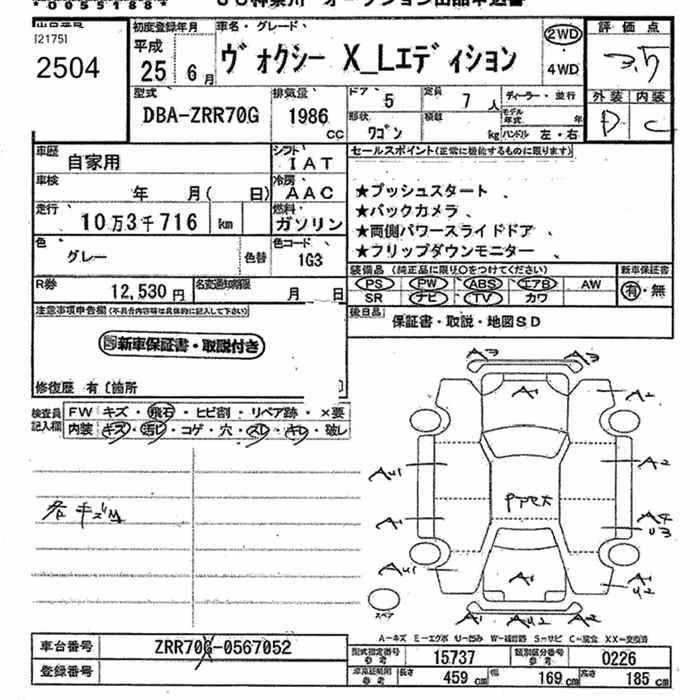 2504
初度登録年月
車名・グレード
評価点
平成
25年 6月
ヴォクシー X_Lエディション
2WD
・4WD
3.5
型式
DBA-ZRR70G
排気量
1986 CC
ドア 5
定員 7 人
ディーラー・並行
外装 内装
形状 ワゴン
積載 kg
モデル年式 年
ハンドル 左・右
D C
車歴 自家用
シフト IAT
セールスポイント(正常に機能するものに限ります)
車検 年 月( 日)
冷房 AAC
★プッシュスタート
走行 10万3千716 km
燃料 ガソリン
★バックカメラ
★両側パワースライドドア
色 グレー
色替
色コード 1G3
★フリップダウンモニター
R券 12,530円
名変通知期限 月 日
装備品 (純正品に限り○をつけてください)
新車保証書
PS PW ABS エアB AW
有・無
SR ナビ TV カワ
注意事項申告欄(不具合内容等は具体的に記入して下さい)
後日品 保証書・取説・地図SD
新車保証書・取説付き
修復歴 有〔箇所 〕
検査員記入欄
FW キズ・飛石・ヒビ割・リペア跡・×要
内装 キズ・汚レ・コゲ・穴・スレ・キレ・破レ
A3 A3
A1 A2
AU1 A2
A1 A4
U3
AU1 A1 A2
U2
A1 AU2 A2
スペア
A-キズ E-エクボ U-凹み W-補修跡 S-サビ C-腐食 XX-交換済
車台番号 ZRR70G-0567052
型式指定番号 参考 15737
類別区分番号 参考 0226
登録番号
長さ 459 cm
幅 169 cm
高さ 185 cm